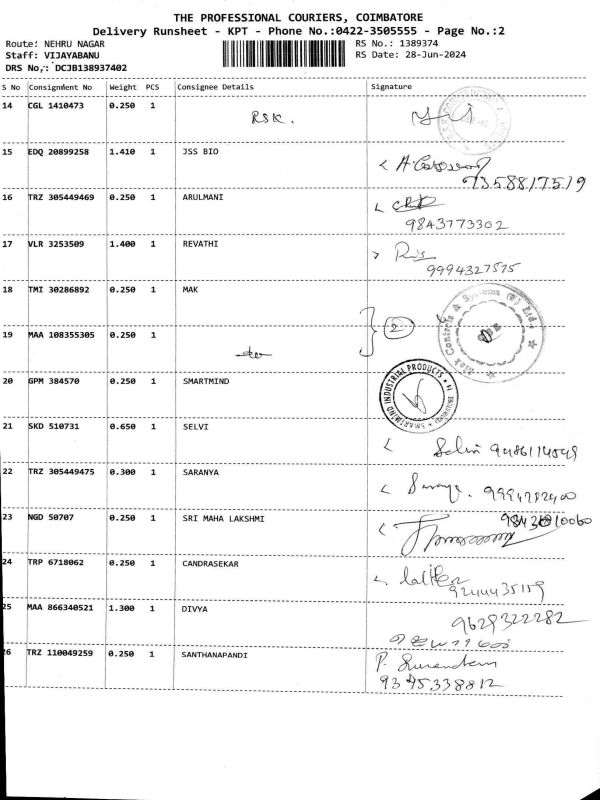 THE PROFESSIONAL COURIERS, COIMBATORE
Delivery Runsheet - KPT - Phone No.:0422-3505555 - Page No.:2
Route: NEHRU NAGAR
RS No.: 1389374
Staff: VIJAYABANU
RS Date: 28-Jun-2024
DRS No,: DCJB138937402
S No Consignment No Weight PCS Consignee Details Signature
14 CGL 1410473 0.250 1 RSK.
15 EDQ 20899258 1.410 1 JSS BIO
7358817519
16 TRZ 305449469 0.250 1 ARULMANI
9843773302
17 VLR 3253509 1.400 1 REVATHI
9994327575
18 TMI 30286892 0.250 1 MAK
2
19 MAA 108355305 0.250 1
20 GPM 384570 0.250 1 SMARTMIND
SMARTMIND INDUSTRIAL PRODUCTS
21 SKD 510731 0.650 1 SELVI
Selvi
22 TRZ 305449475 0.300 1 SARANYA
Saranya.
23 NGD 50707 0.250 1 SRI MAHA LAKSHMI
24 TRP 6718062 0.250 1 CANDRASEKAR
9244435159
25 MAA 866340521 1.300 1 DIVYA
9629322282
26 TRZ 110049259 0.250 1 SANTHANAPANDI
9345338812